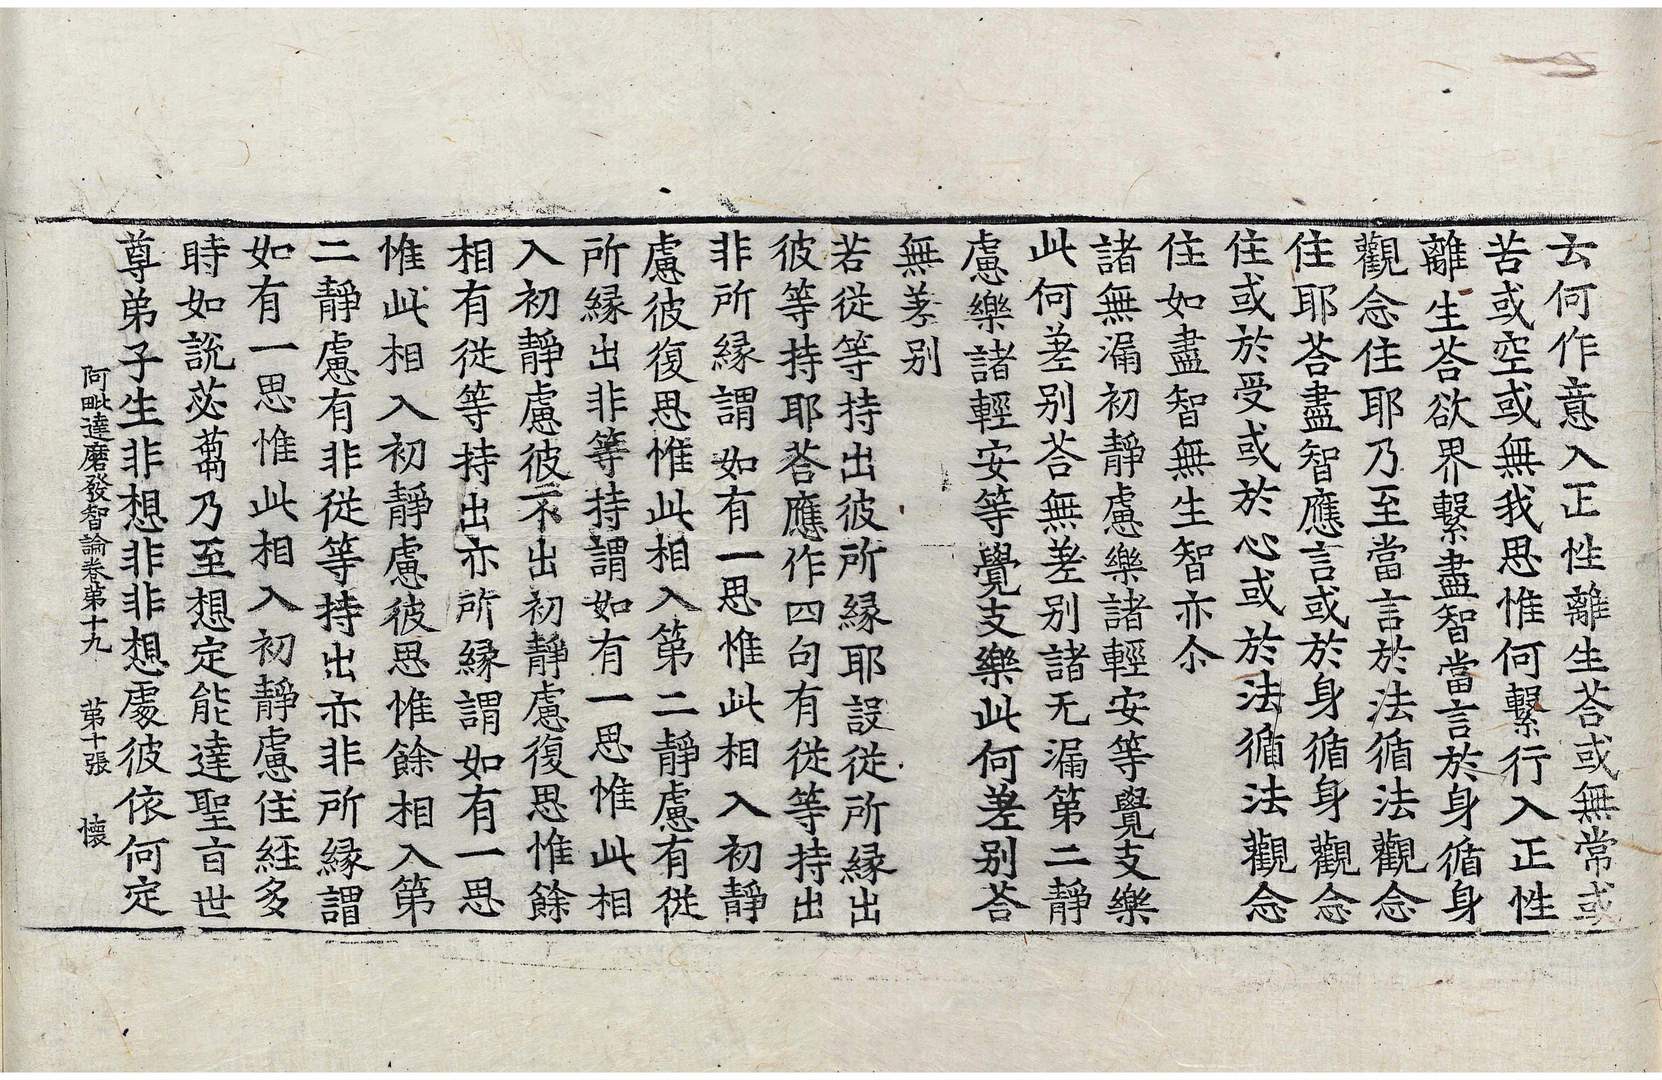 云何作意入正性離生荅或無常或
苦或空或無我思惟何繫行入正性
離生荅欲界繫盡智當言於身循身
觀念住耶乃至當言於法循法觀念
住耶荅盡智應言或於身循身觀念
住或於受或於心或於法循法觀念
住如盡智無生智亦尒
諸無漏初靜慮樂諸輕安等覺支樂
此何差别荅無差别諸无漏第二靜
慮樂諸輕安等覺支樂此何差别荅
無差别
若從等持出彼所縁耶設從所縁出
彼等持耶荅應作四句有從等持出
非所縁謂如有一思惟此相入初靜
慮彼復思惟此相入第二靜慮有從
所縁出非等持謂如有一思惟此相
入初靜慮彼不出初靜慮復思惟餘
相有從等持出亦所縁謂如有一思
惟此相入初靜慮彼思惟餘相入第
二靜慮有非從等持出亦非所縁謂
如有一思惟此相入初靜慮住經多
時如說苾蒭乃至想定能達聖㫖世
尊弟子生非想非非想處彼依何定
阿毗達磨發智論卷第十九 第十張 懷